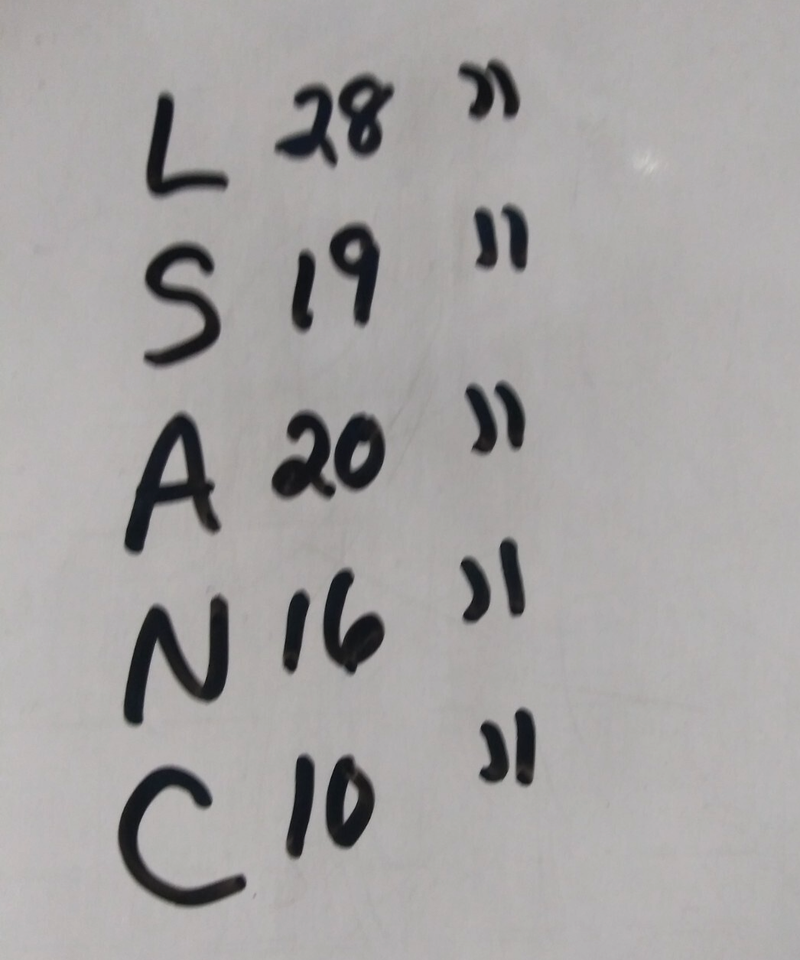 L 28 "
S 19 "
A 20 "
N 16 "
C 10 "